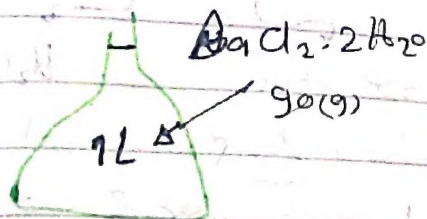 BaCl₂.2H₂O
90(g)
1L